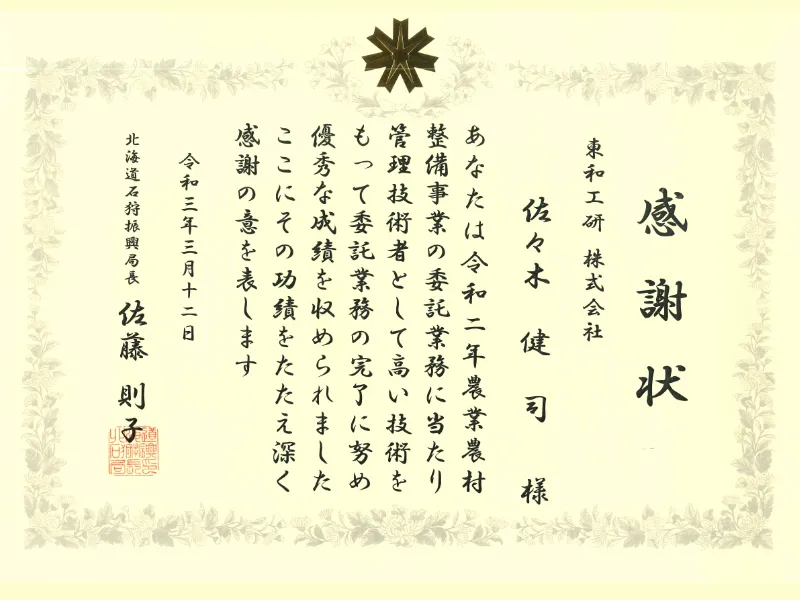 感謝状
東和工研 株式会社
佐々木 健司 様
あなたは令和二年農業農村
整備事業の委託業務に当たり
管理技術者として高い技術を
もって委託業務の完了に努め
優秀な成績を収められました
ここにその功績をたたえ深く
感謝の意を表します
令和三年三月十二日
北海道石狩振興局長 佐藤 則子